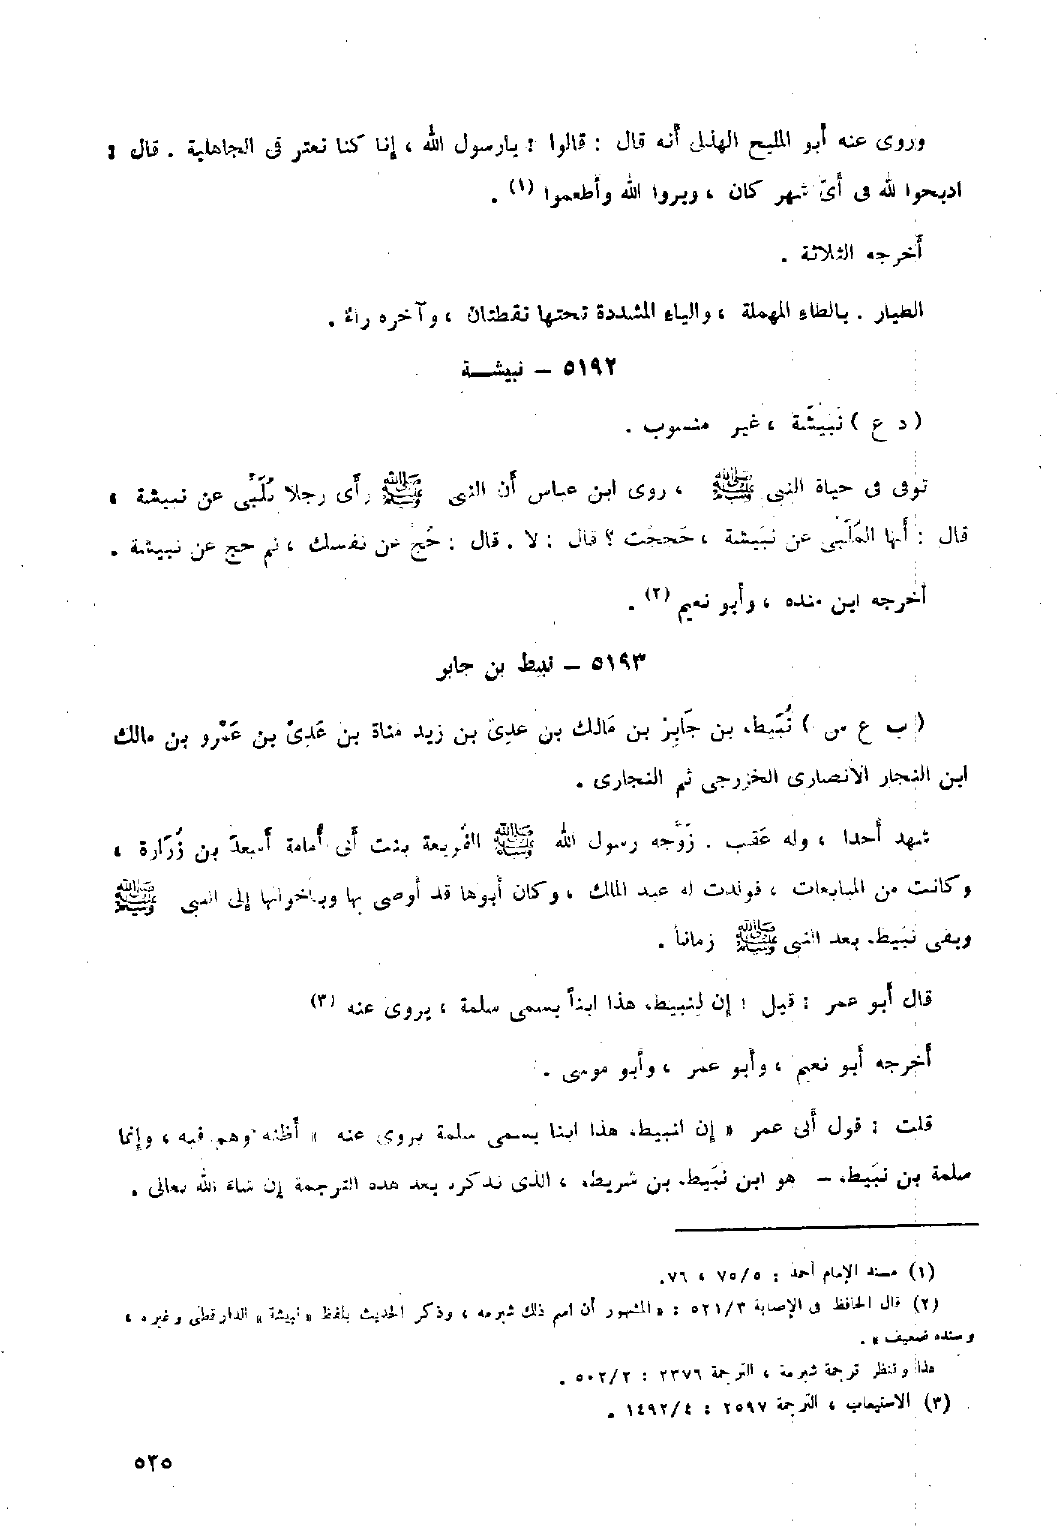 وروى عنه أبو المليح الهذلى أنه قال : قالوا : يارسول الله ، إنا كنا نعتر فى الجاهلية . قال :
اذبحوا لله فى أىّ شهر كان ، وبروا الله وأطعموا (١) .
أخرجه الثلاثة .
الطيار . بالطاء المهملة ، والياء المشددة تحتها نقطتان ، وآخره راء .
٥١٩٢ – نبيشــة
( د ع ) نُبَيْشَة ، غير منسوب .
توفى فى حياة النبى ﷺ ، روى ابن عباس أن النبى ﷺ رأى رجلا يُلَبِّى عن نبيشة ،
قال : أيها المُلَبِّى عن نبَيشة ، حَججْت ؟ قال : لا . قال : حُجّ عن نفسك ، ثم حج عن نبيشة .
أخرجه ابن منده ، وأبو نعيم (٢) .
٥١٩٣ – نبيط بن جابر
( ب ع س ) نُبَيط بن جَابِرْ بن مَالك بن عدىّ بن زيد مناة بن عَدىّ بن عَمْرو بن مالك
ابن النجار الأنصارى الخزرجى ثم النجارى .
شهد أحدا ، وله عَقب . زَوَّجه رسول الله ﷺ الفُريعة بنت أبى أُمامة أسعدَ بن زُرَارة ،
وكانت من المبايعات ، فولدت له عبد الملك ، وكان أبوها قد أوصى بها وبأخواتها إلى النبى ﷺ
وبقى نُبَيط بعد النبى ﷺ زماناً .
قال أبو عمر : قيل : إن لنبيط هذا ابناً يسمى سلمة ، يروى عنه (٣)
أخرجه أبو نعيم ، وأبو عمر ، وأبو موسى .
قلت : قول أبى عمر « إن لنبيط هذا ابنا يسمى سلمة يروى عنه » أظنه وهم فيه ، وإنما
سلمة بن نبَيط – هو ابن نُبَيط بن شريط ، الذى نذكره بعد هذه الترجمة إن شاء الله تعالى .
(١) مسند الإمام أحمد : ٥/٧٥ ، ٧٦.
(٢) قال الحافظ فى الإصابة ٣/٥٢١ : « المشهور أن اسم ذلك شبرمه ، وذكر الحديث بلفظ « نبيشة » الدارقطى وغيره ،
وسنده ضعيف » .
هذا وتنظر ترجمة شبرمة ، الترجمة ٢٣٧٦ : ٢/٥٠٢ .
(٣) الاستيعاب ، الترجمة ٢٥٩٧ : ٤/١٤٩٢ .
٥٢٥